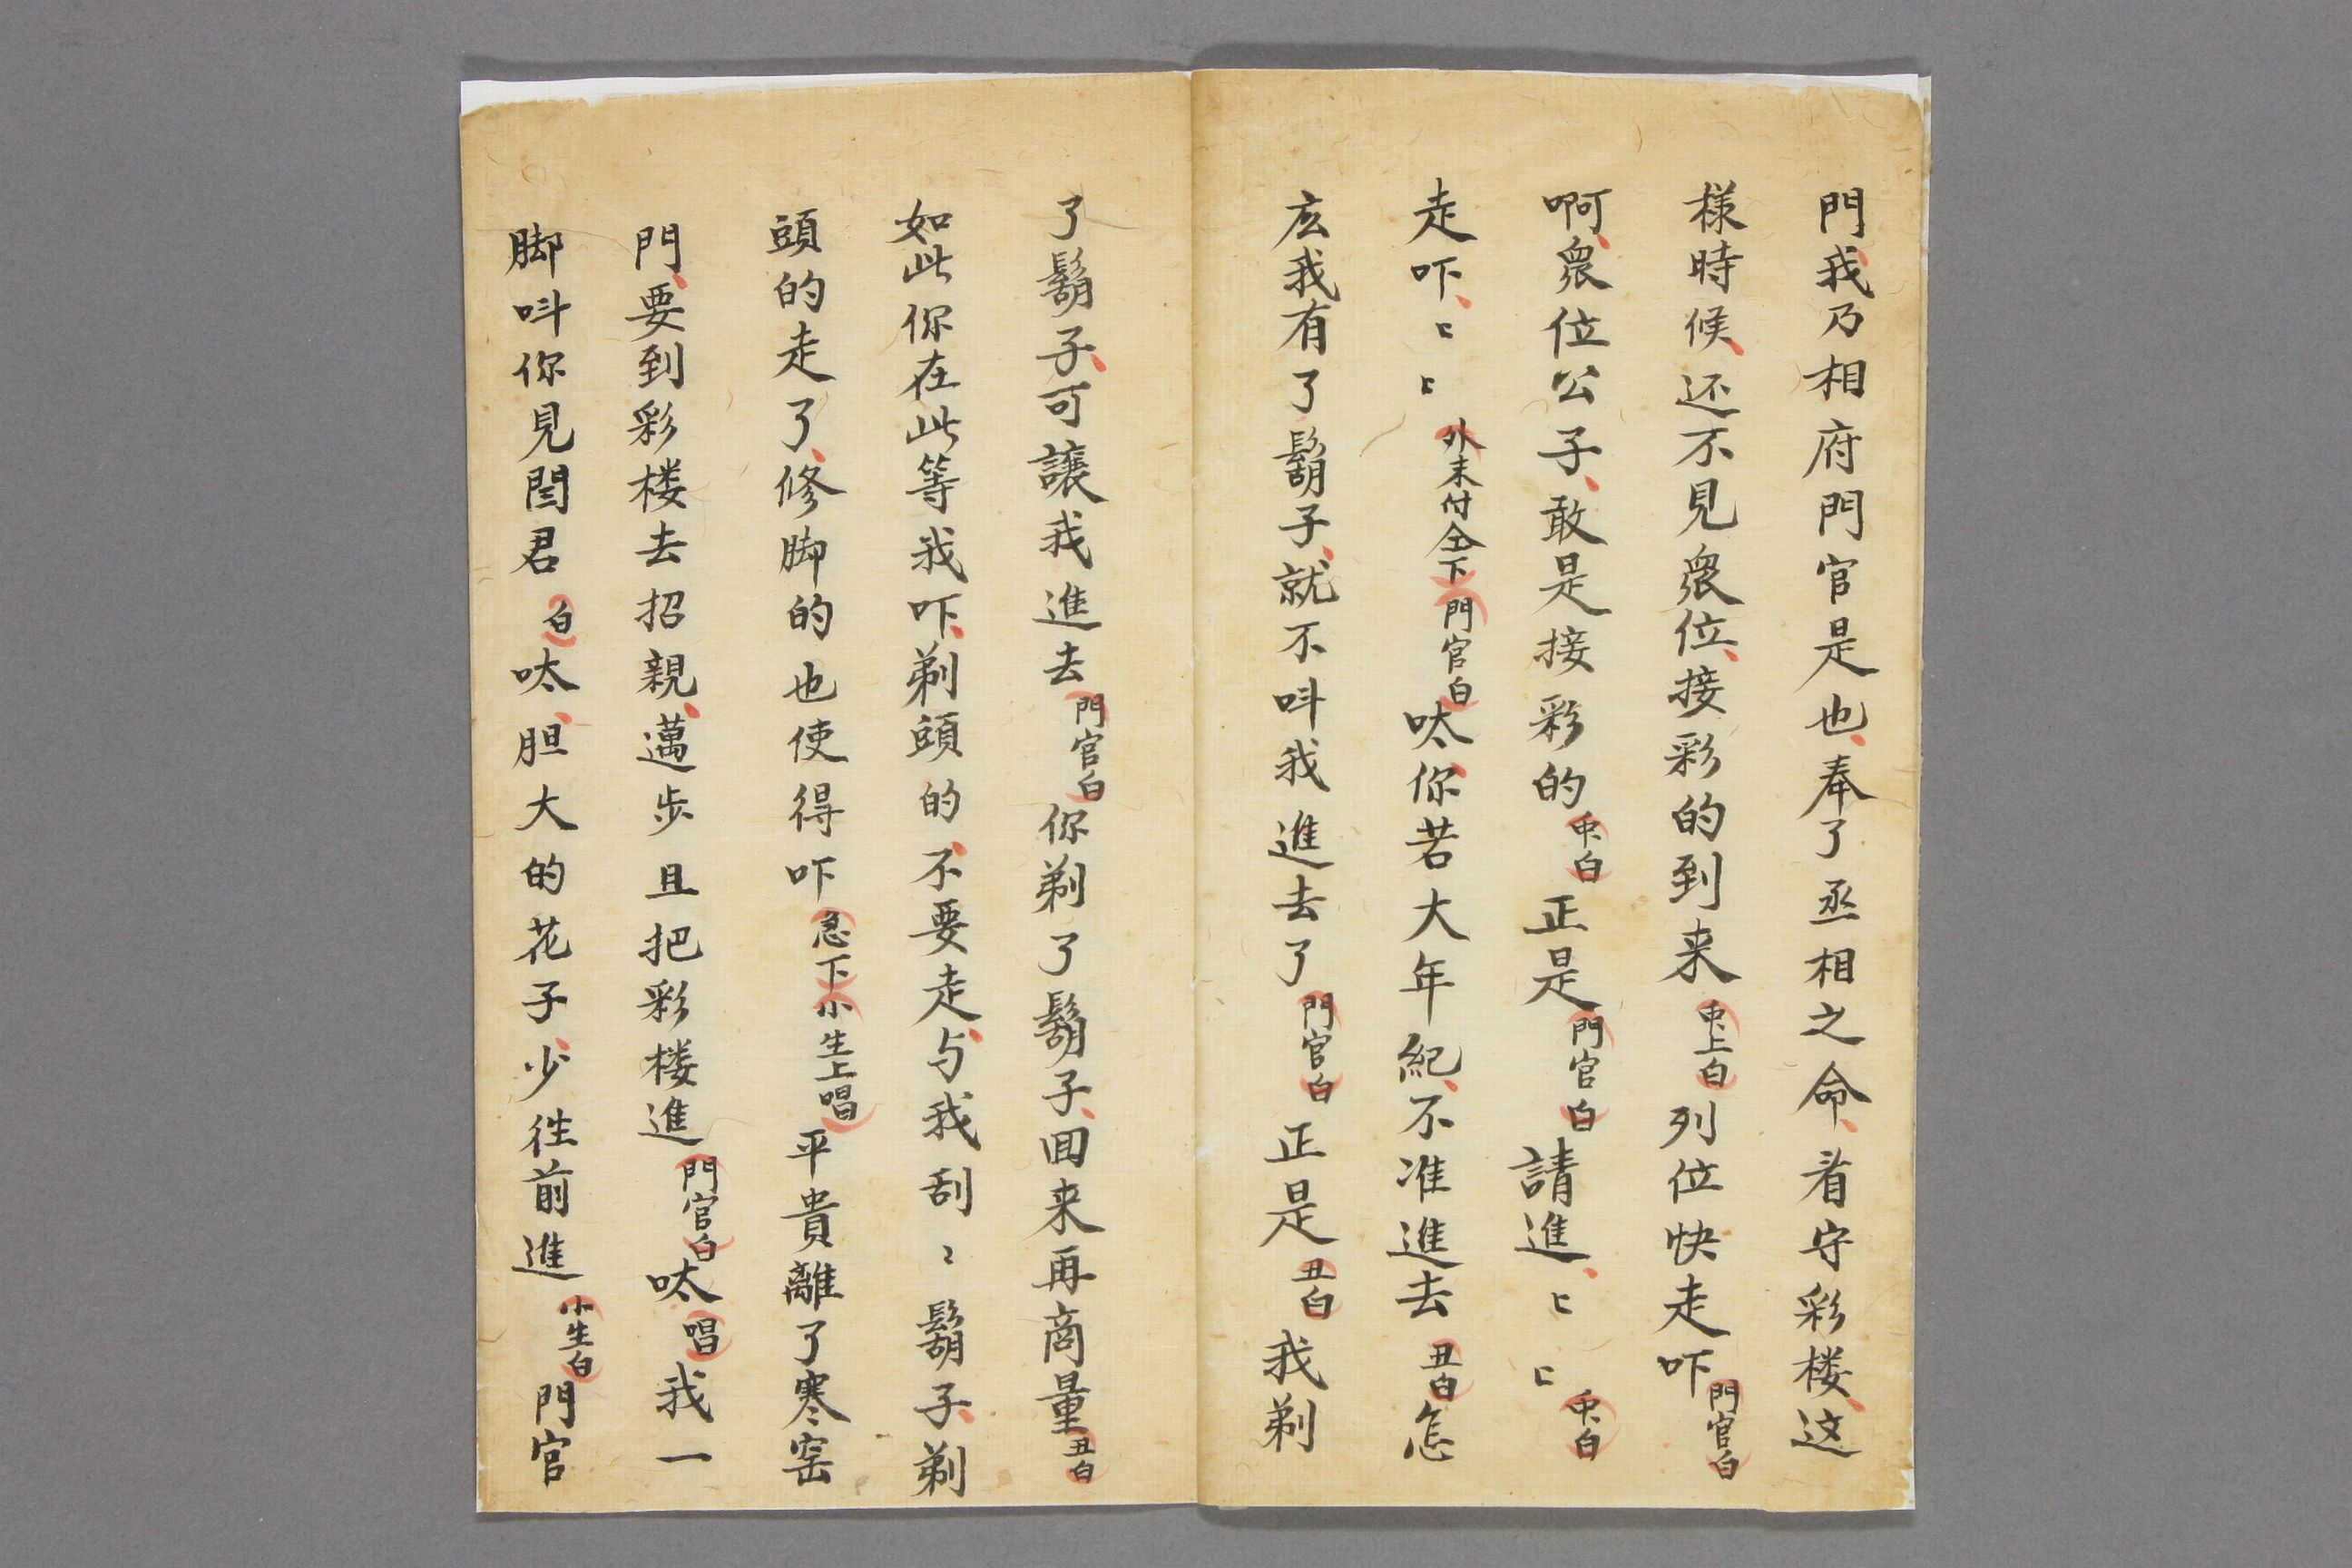 門我乃相府門官是也、奉了丞相之命、看守彩楼、这
様時候、还不見衆位、接彩的到来 重上白 列位快走吓 門官白
啊、衆位公子、敢是接彩的 重白 正是 門官白 請進、ヒヒ 重白
走吓、ヒヒ 外末付仝下 門官白 呔、你若大年紀、不准進去 丑白 怎
広我有了鬍子、就不呌我進去了 門官白 正是 丑白 我剃
了鬍子、可譲我進去 門官白 你剃了鬍子、回来再商量 丑白
如此你在此等我吓、剃頭的、不要走、与我刮〻鬍子、剃
頭的走了、修脚的也使得吓 急下 小生上唱 平貴離了寒窑
門、要到彩楼去招親、邁步且把彩楼進 門官白 呔 唱 我一
脚呌你見閻君 白 呔、胆大的花子、少往前進 小生白 門官